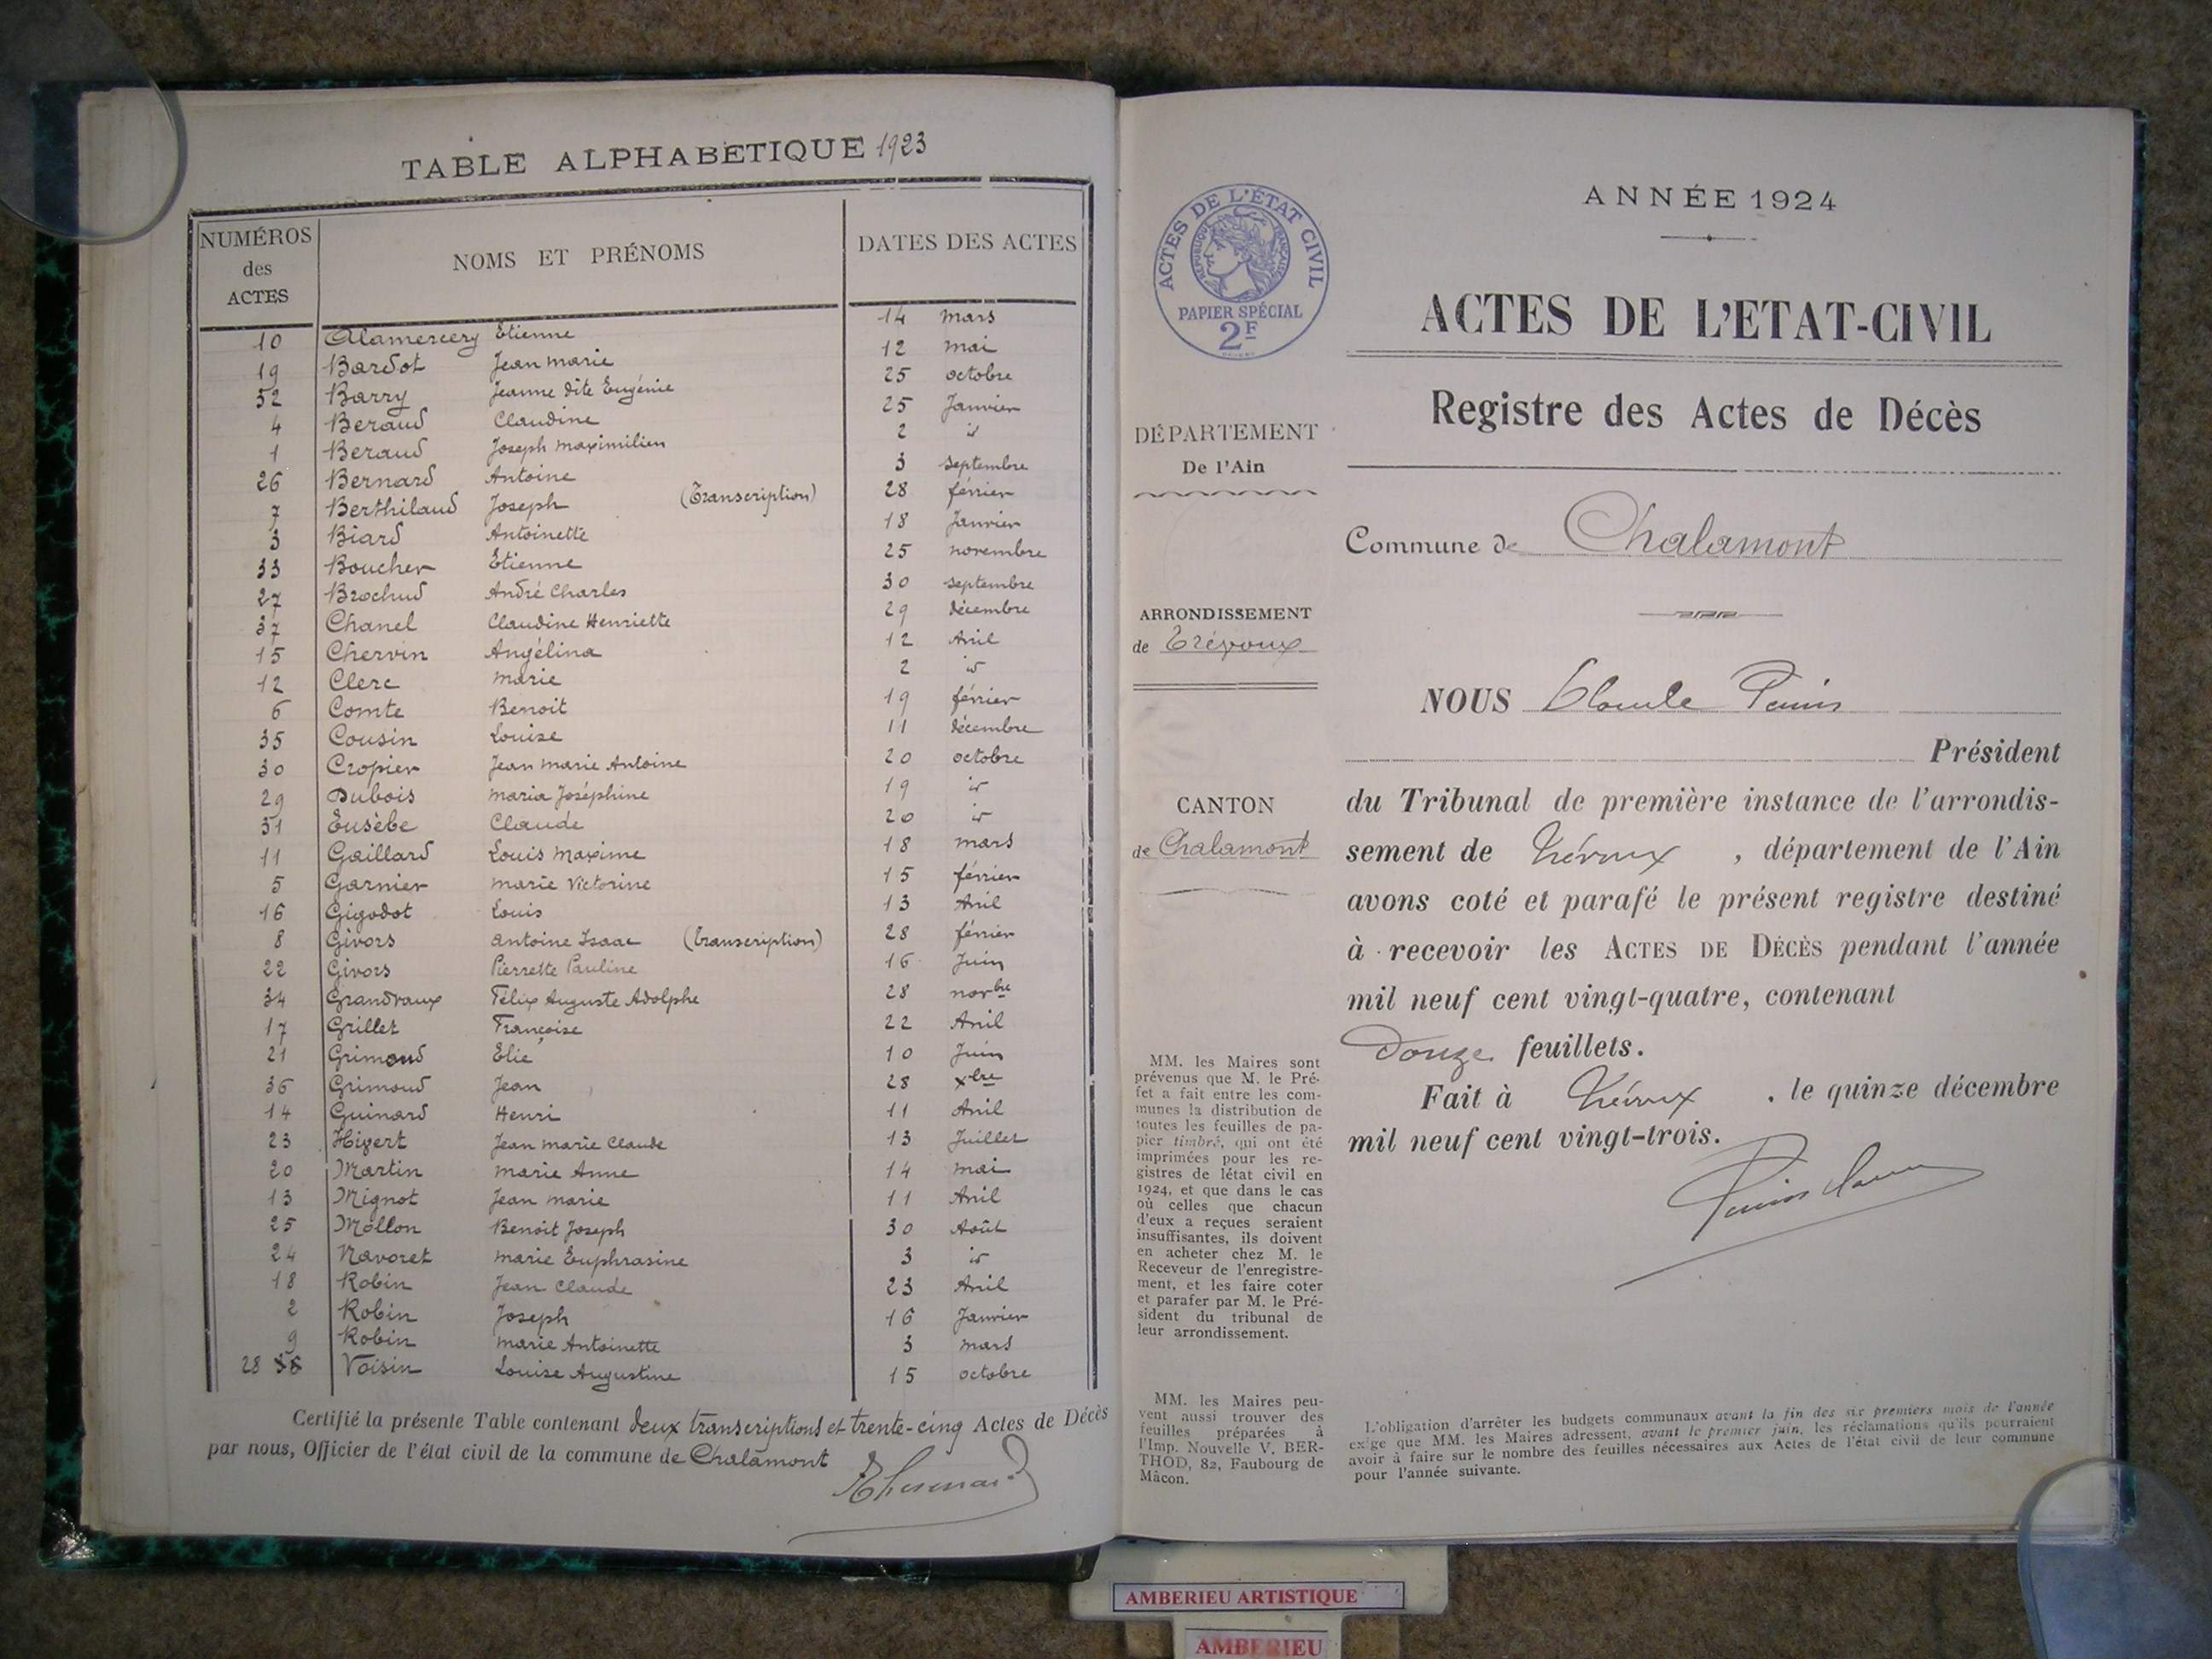 TABLE ALPHABETIQUE 1923
NUMÉROS des ACTES NOMS ET PRÉNOMS DATES DES ACTES
10 Alamercery Etienne 14 mars
19 Bardot Jean marie 12 mai
32 Barry Jeanne dite Eugénie 25 octobre
4 Beraud Claudine 25 Janvier
1 Beraud Joseph maximilien 2 id
26 Bernard Antoine 3 septembre
7 Berthilaud Joseph (Transcription) 28 février
3 Biard Antoinette 18 Janvier
33 Boucher Etienne 25 novembre
27 Brochud André Charles 30 septembre
37 Chanel Claudine Henriette 29 décembre
15 Chervin Angélina 12 Avril
12 Clerc marie 2 id
6 Comte Benoit 19 février
35 Cousin Louise 11 décembre
30 Cropier Jean marie Antoine 20 octobre
29 Dubois maria Joséphine 19 id
31 Eusèbe Claude 20 id
11 Gaillard Louis maxime 18 mars
5 Garnier marie Victorine 15 février
16 Gigodot Louis 13 Avril
8 Givors Antoine Isaac (transcription) 28 février
22 Givors Pierrette Pauline 16 Juin
34 Grandvaux Félix Auguste Adolphe 28 novbre
17 Grillet Françoise 22 Avril
21 Grimaud Elie 10 Juin
36 Grimoud Jean 28 xbre
14 Guinard Henri 11 Avril
23 Higert Jean marie Claude 13 Juillet
20 Martin marie Anne 14 mai
13 Mignot Jean marie 11 Avril
25 Mollon Benoit Joseph 30 Août
24 Navoret marie Euphrasine 3 id
18 Robin Jean Claude 23 Avril
2 Robin Joseph 16 Janvier
9 Robin marie Antoinette 3 mars
28 Voisin Louise Augustine 15 octobre
Certifié la présente Table contenant deux transcriptions et trente-cinq Actes de Décès
par nous, Officier de l'état civil de la commune de Chalamont
ACTES DE L'ÉTAT CIVIL
RÉPUBLIQUE FRANÇAISE
PAPIER SPÉCIAL
2F
DÉPARTEMENT
De l'Ain
ARRONDISSEMENT
de Trévoux
CANTON
de Chalamont
MM. les Maires sont
prévenus que M. le Pré-
fet a fait entre les com-
munes la distribution de
toutes les feuilles de pa-
pier timbré, qui ont été
imprimées pour les re-
gistres de létat civil en
1924, et que dans le cas
où celles que chacun
d'eux a reçues seraient
insuffisantes, ils doivent
en acheter chez M. le
Receveur de l'enregistre-
ment, et les faire coter
et parafer par M. le Pré-
sident du tribunal de
leur arrondissement.
MM. les Maires peu-
vent aussi trouver des
feuilles préparées à
l'Imp. Nouvelle V. BER-
THOD, 82, Faubourg de
Mâcon.
ANNÉE 1924
ACTES DE L'ETAT-CIVIL
Registre des Actes de Décès
Commune de Chalamont
NOUS Claude
Président
du Tribunal de première instance de l'arrondis-
sement de Trévoux, département de l'Ain
avons coté et parafé le présent registre destiné
à recevoir les ACTES DE DÉCÈS pendant l'année
mil neuf cent vingt-quatre, contenant
Douze feuillets.
Fait à Trévoux, le quinze décembre
mil neuf cent vingt-trois.
L'obligation d'arrêter les budgets communaux avant la fin des six premiers mois de l'année
exige que MM. les Maires adressent, avant le premier juin, les réclamations qu'ils pourraient
avoir à faire sur le nombre des feuilles nécessaires aux Actes de l'état civil de leur commune
pour l'année suivante.
AMBERIEU ARTISTIQUE
AMBERIEU